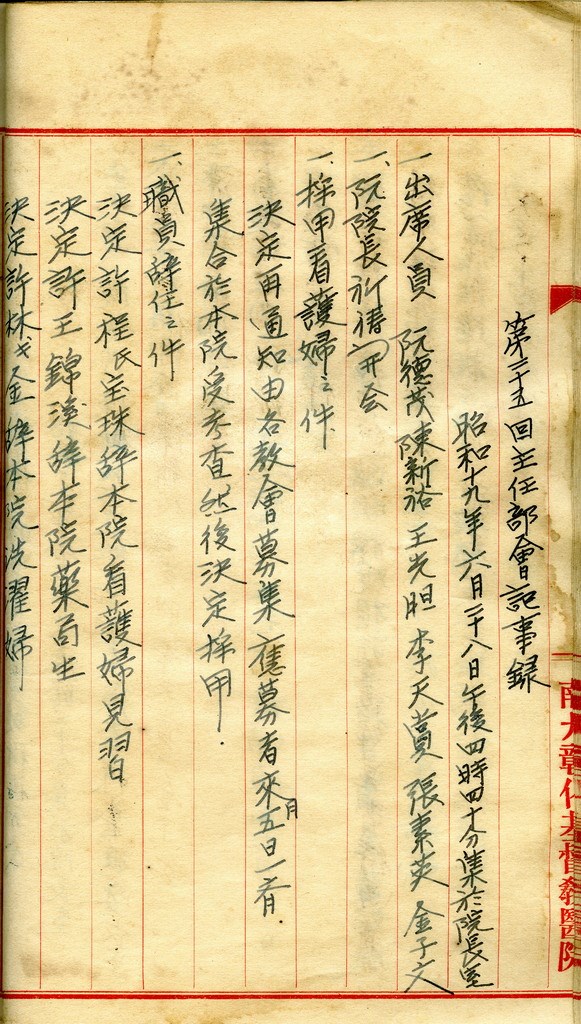 第三十五回主任部會記事録
昭和十九年六月二十八日午後四時四十分集於院長室
一 出席人員 阮德茂 陳新裕 王光胆 李天賞 張素英 金子文
一、阮院長祈禱開会
一、採用看護婦之件
決定再通知由各教會募集 應募者來月五日一齊
集合於本院受考查然後決定採用.
一、職員辞任之件
決定許程氏宝珠辞本院看護婦見習
決定許王錦漢辞本院藥局生
決定許林氏金辞本院洗濯婦
彰化基督教醫院